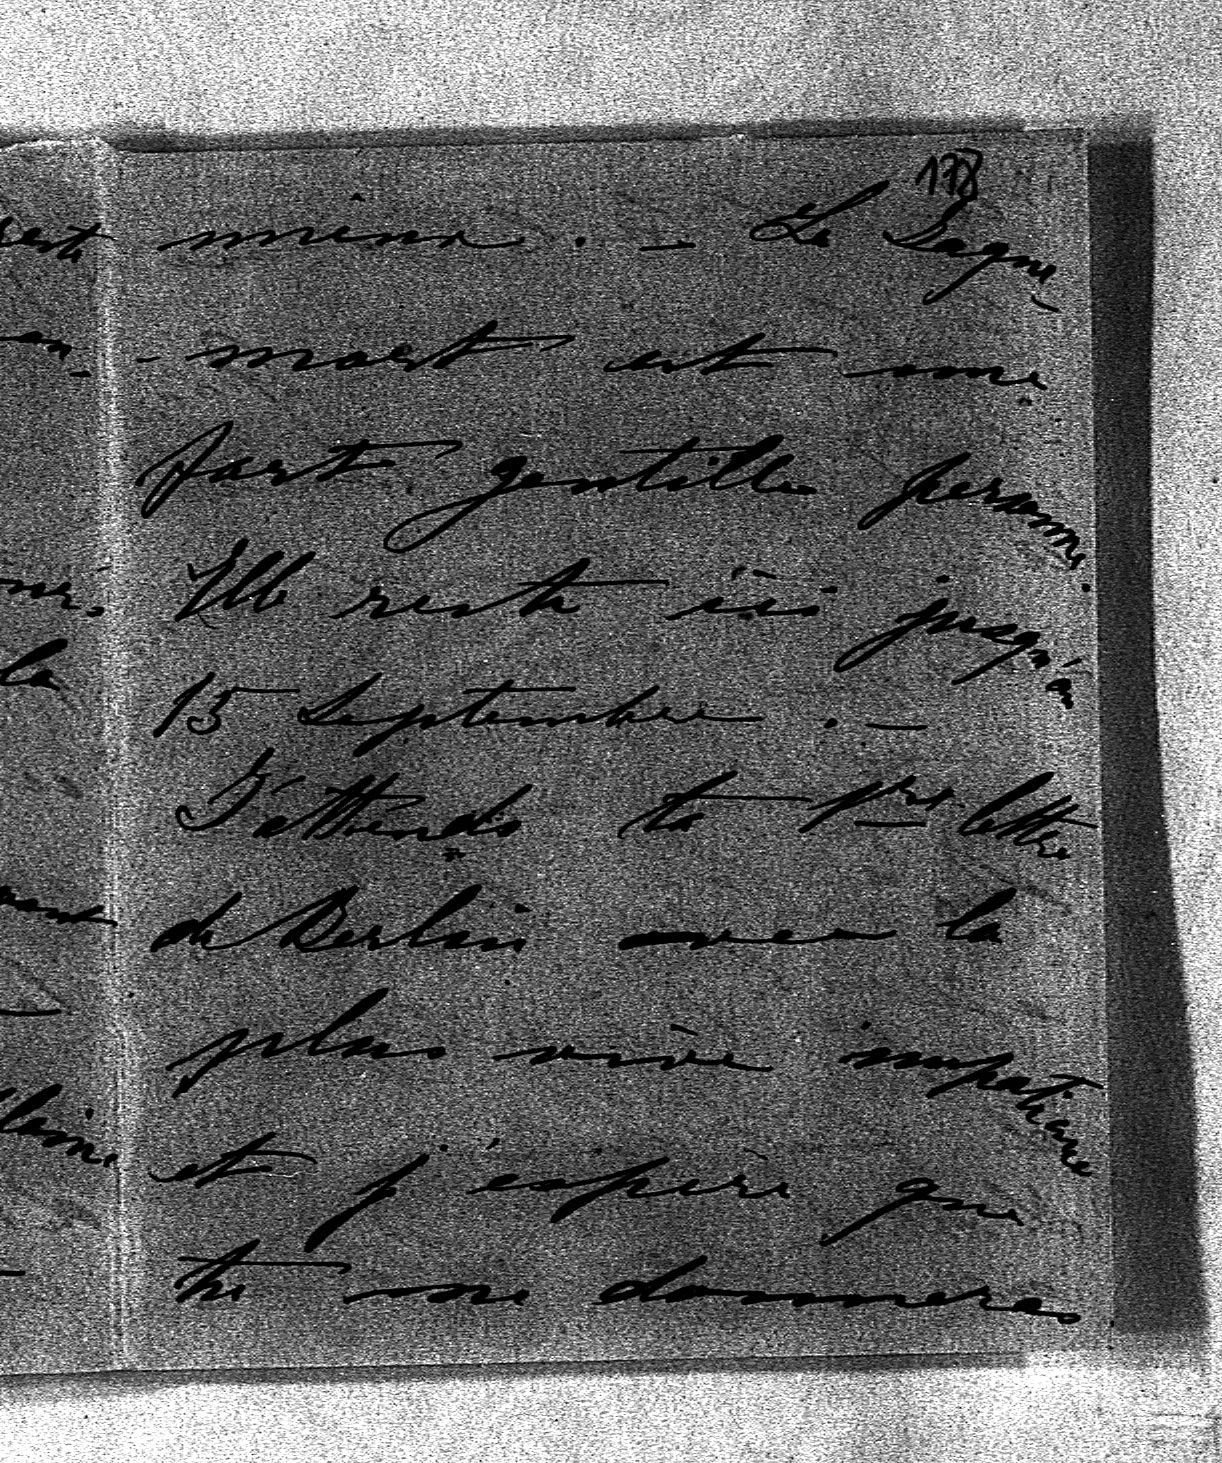 178
mieux. — La Sagne
- mort est une
fort gentille personne.
Elle reste ici jusqu'au
15 Septembre. —
J'attends ta 1re lettre
de Berlin avec la
plus vive impatience
et j'espère que
tu me donneras